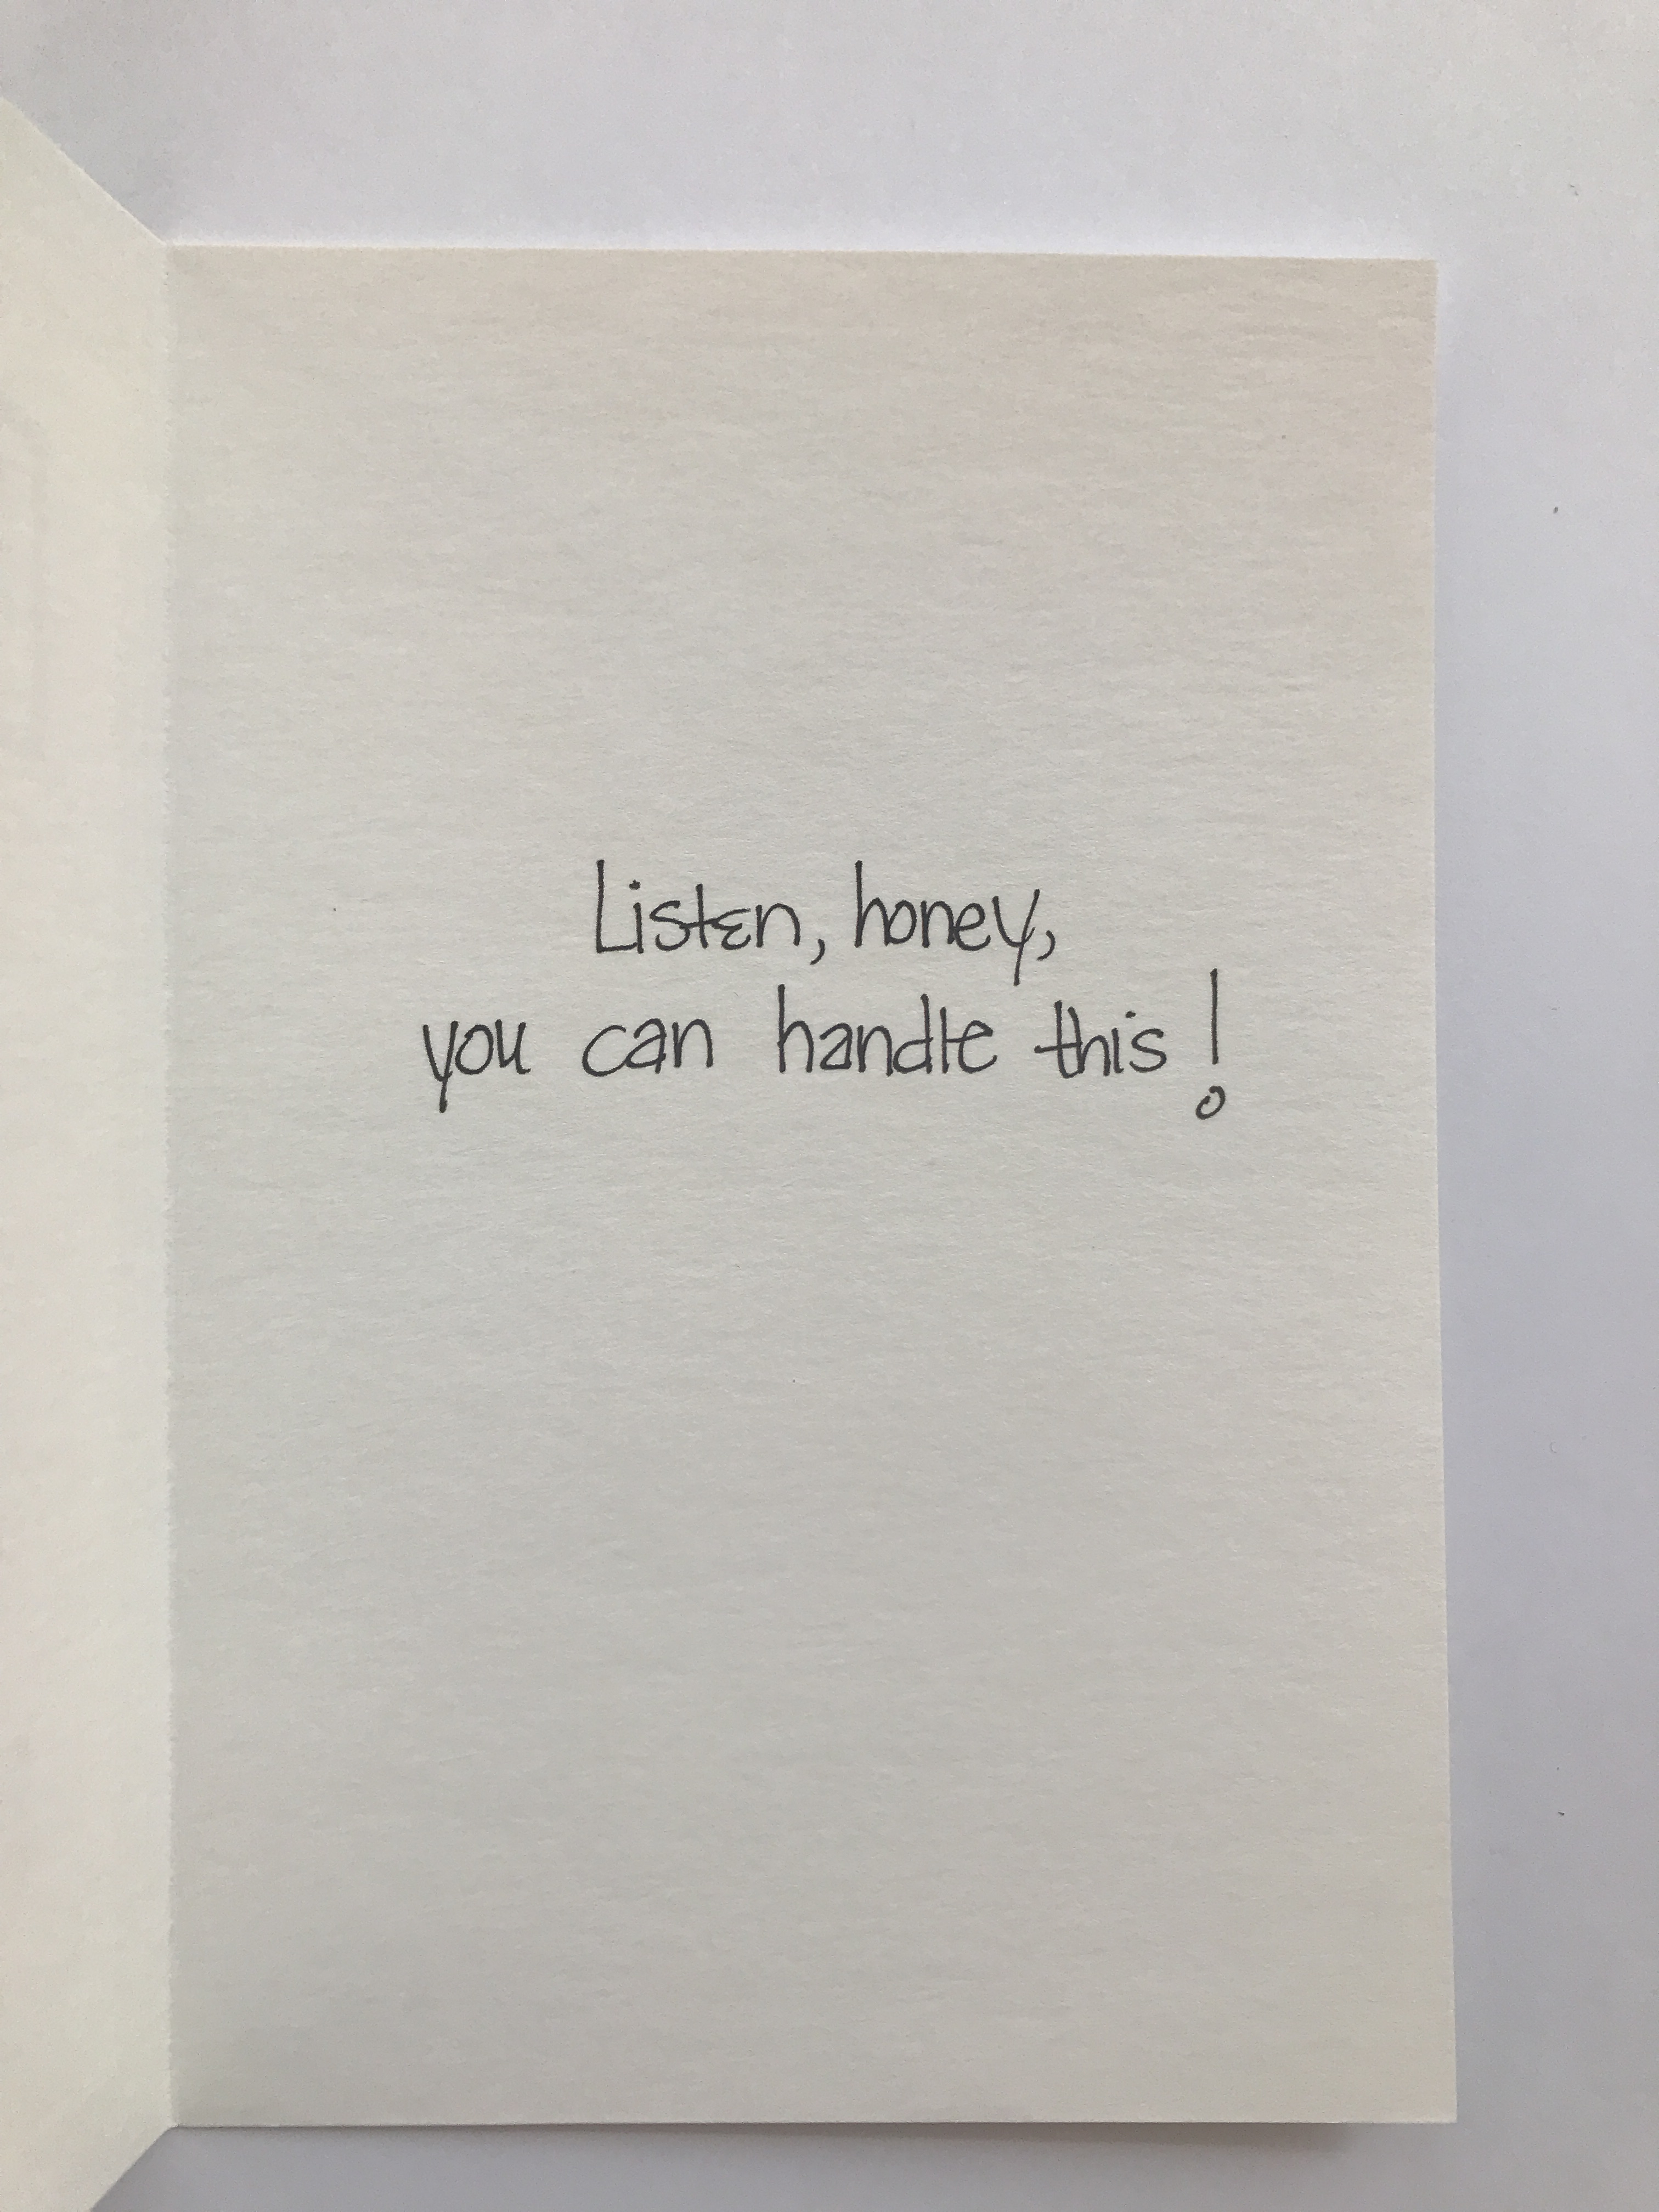 Listen, honey,
you can handle this!